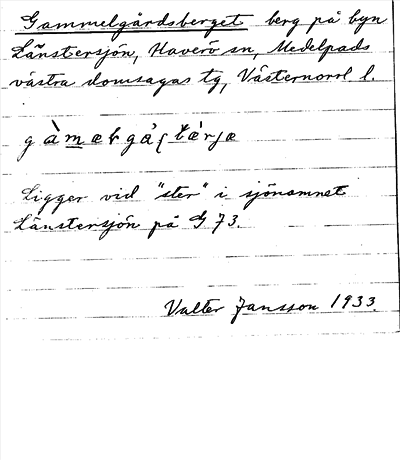 Gammelgårdsberget berg på byn
Länstersjön, Haverö sn, Medelpads
västra domsagas tg, Västernorrl l.
Ligger vid "ster" i sjönamnet
Länstersjön på G 73.
Valter Jansson 1933.